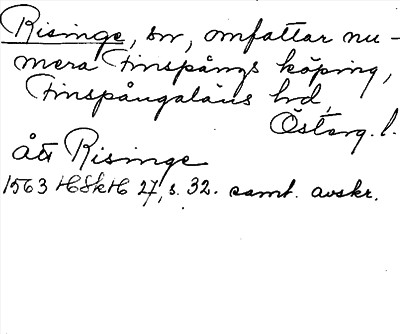 Risinge, sn, omfattar nu-
mera Finspångs köping,
Finspångaläns hd,
Österg. l.
ått Risinge
1563 HSkH 27, s. 32. samt. avskr.